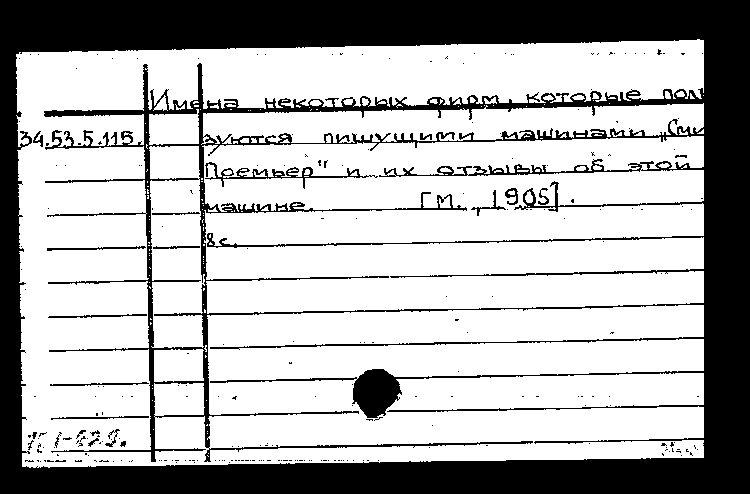 Имена некоторых фирм, которые поль
34.53.5.115. зуются пишущими машинами „Сми
Премьер" и их отзывы об этой
машине. [М., 1905].
8 с.